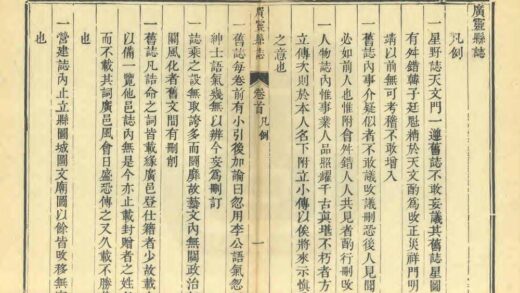 廣靈縣誌
凡例
一星野誌天文門一遵舊誌不敢妄議其舊誌星圖
有舛錯韓子廷魁精於天文酌為改正災祥門明
靖以前無可考稽不敢增入
一舊誌內事介疑似者不敢議改議刪恐後人見聞
必如前人也惟附會舛錯人人共見者酌行刪改
一人物誌內惟事業人品照耀千古真堪不朽者方
立傳次則於本人名下附立小傳以俟將來示慎
之意也
廣靈縣誌 卷首 凡例 一
舊誌每卷前有小引後加論曰忽用李公語氣忽
紳士語氣幾無以辨今妄為刪訂
一誌乘之設無取誇多而鬪靡故藝文內無關政治
關風化者舊文間有刪削
一舊誌凡誥命之詞皆載緣廣邑登仕籍者少故載
以備一覽他邑誌內無是今亦止載封贈者之姓
而不載其詞廣邑風會日盛恐傳之又久載不勝
也
一營建誌內止立縣圖城圖文廟圖以餘皆改移無
也